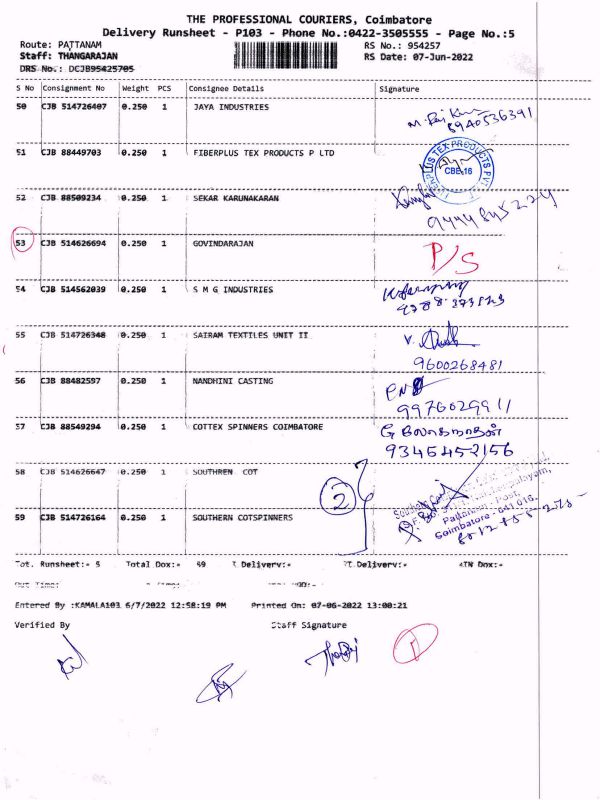 THE PROFESSIONAL COURIERS, Coimbatore
Delivery Runsheet - P103 - Phone No.:0422-3505555 - Page No.:5
Route: PATTANAM RS No.: 954257
Staff: THANGARAJAN RS Date: 07-Jun-2022
DRS No.: DCJB95425705
S No Consignment No Weight PCS Consignee Details Signature
50 CJB 514726407 0.250 1 JAYA INDUSTRIES
8940536391
51 CJB 88449703 0.250 1 FIBERPLUS TEX PRODUCTS P LTD
CBE-16
52 CJB 88509234 0.250 1 SEKAR KARUNAKARAN
9444845224
53 CJB 514626694 0.250 1 GOVINDARAJAN P/S
54 CJB 514562039 0.250 1 S M G INDUSTRIES
55 CJB 514726348 0.250 1 SAIRAM TEXTILES UNIT II
9600268481
56 CJB 88482597 0.250 1 NANDHINI CASTING
9976029911
57 CJB 88549294 0.250 1 COTTEX SPINNERS COIMBATORE
9345452156
58 CJB 514626647 0.250 1 SOUTHREN COT
2
59 CJB 514726164 0.250 1 SOUTHERN COTSPINNERS
Pattanam - Post,
Coimbatore - 641 016.
Tot. Runsheet:- 5 Total Dox:- 59 Delivery:- Delivery:- Dox:-
Out Time:-
Entered By :KAMALA103 6/7/2022 12:58:19 PM Printed On: 07-06-2022 13:00:21
Verified By Staff Signature